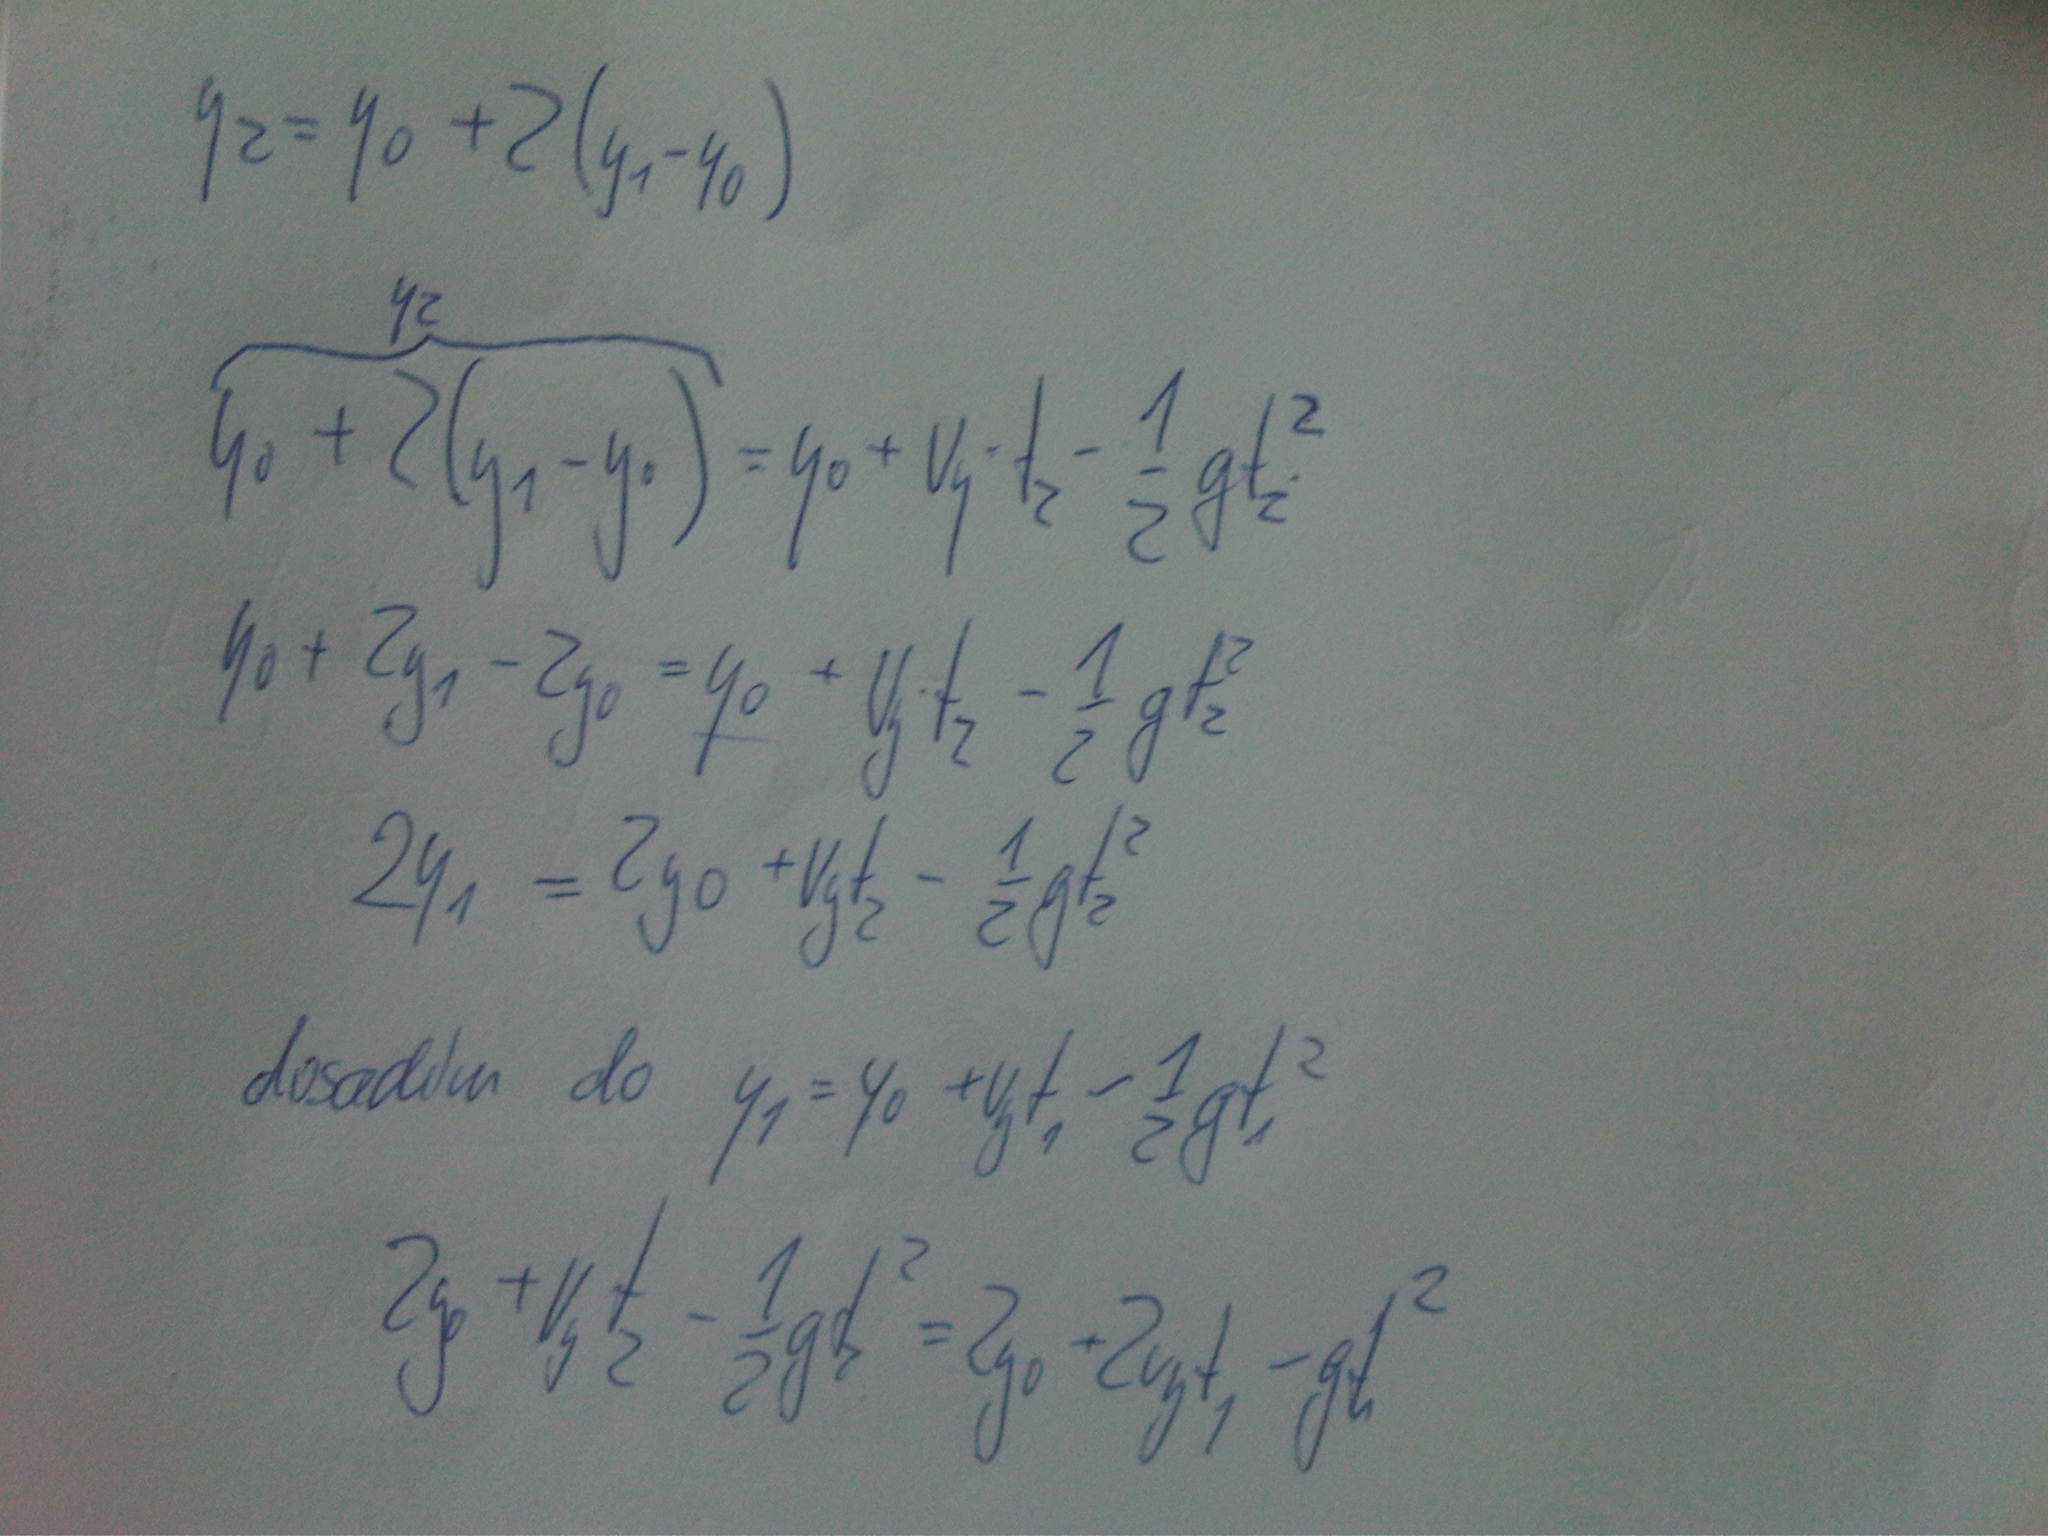 y₂ = y₀ + 2(y₁ - y₀)
y₂
y₀ + 2(y₁ - y₀) = y₀ + v_y · t₂ - 1/2 g t₂²
y₀ + 2y₁ - 2y₀ = y₀ + v_y · t₂ - 1/2 g t₂²
2y₁ = 2y₀ + v_y t₂ - 1/2 g t₂²
dosadím do y₁ = y₀ + v_y t₁ - 1/2 g t₁²
2y₀ + v_y t₂ - 1/2 g t₂² = 2y₀ + 2v_y t₁ - g t₁²